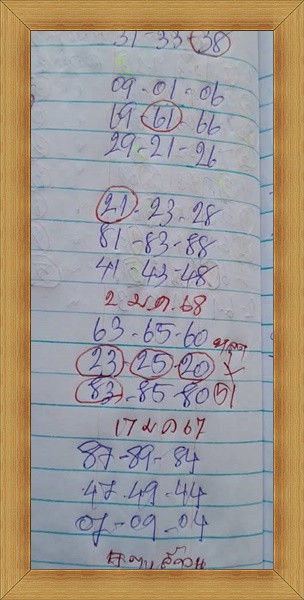 31-33-38
09-01-06
69-61-66
29-21-26
21-23-28
81-83-88
41-43-48
2 ม.ค.68
63-65-60
23-25-20
83-85-80 51
17 ม ค 67
87-89-84
47-49-44
07-09-04